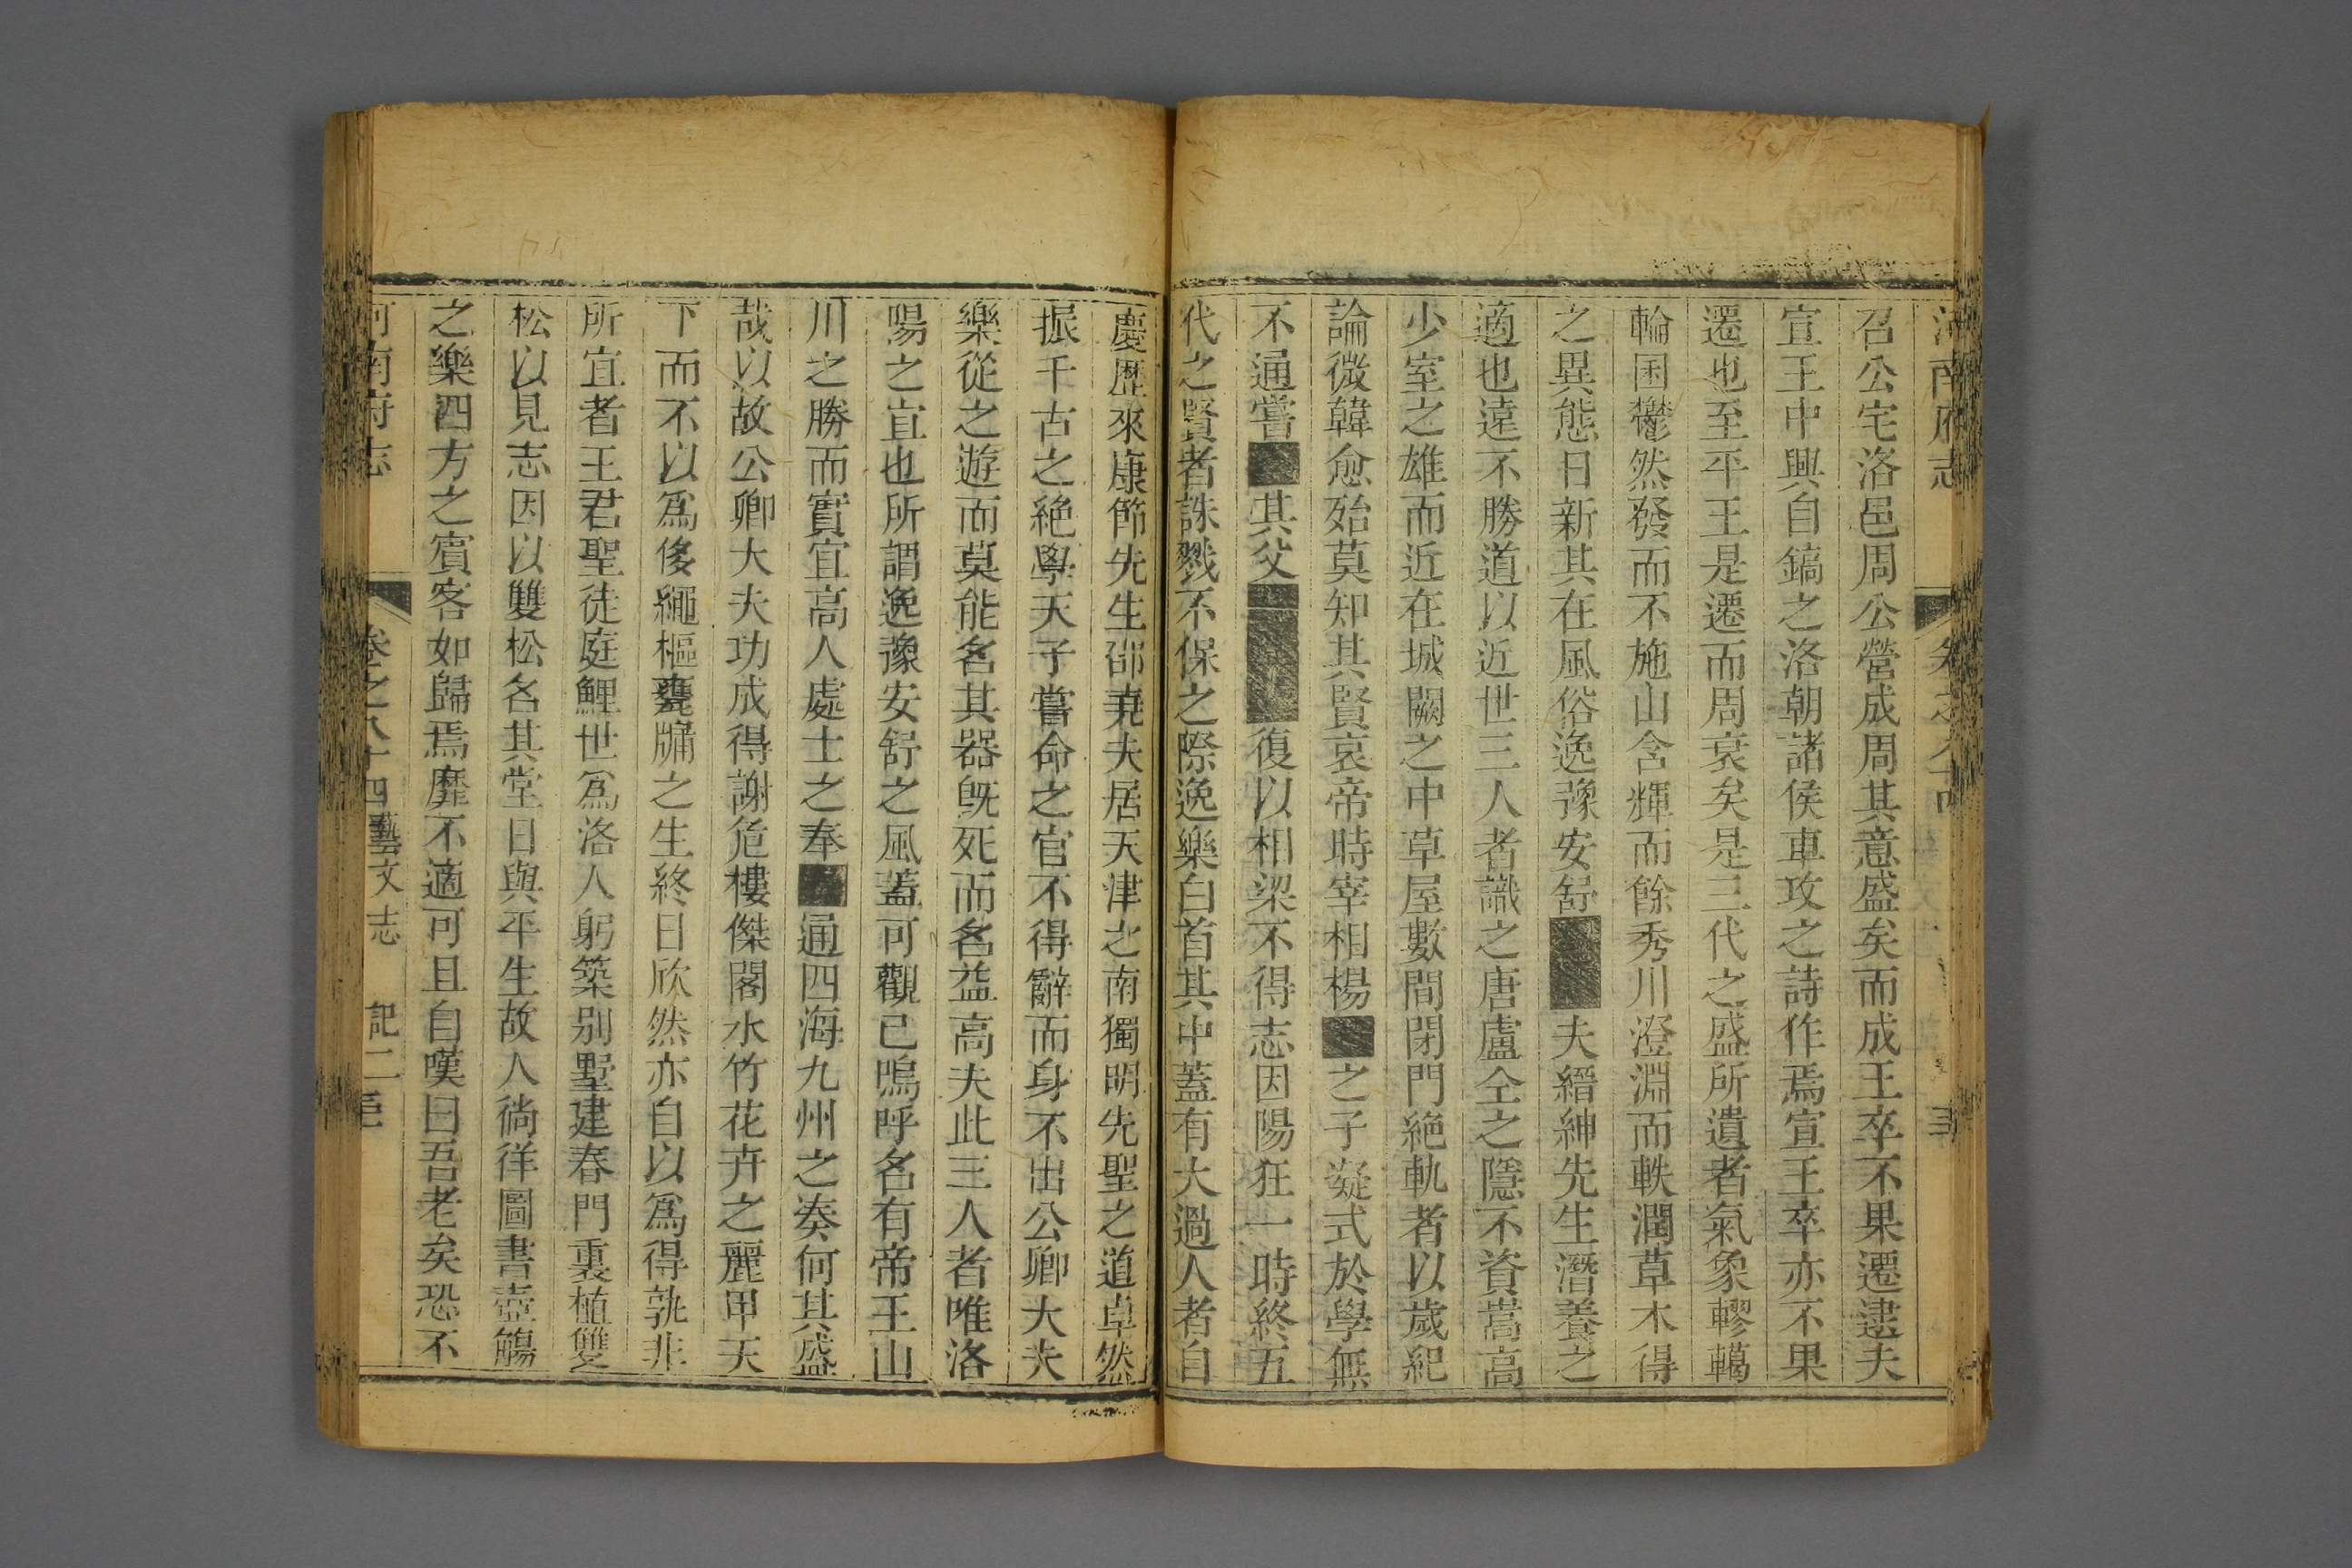 河南府志 卷之八十四
召公宅洛邑周公營成周其意盛矣而成王卒不果遷逮夫
宣王中興自鎬之洛朝諸侯車攻之詩作焉宣王卒亦不果
遷也至平王是遷而周衰矣是三代之盛所遺者氣象轇轕
輪囷鬱然發而不施山含輝而餘秀川澄淵而軼潤草木得
之異態日新其在風俗逸豫安舒■■夫縉紳先生潛養之
適也遠不勝道以近世三人者識之唐盧仝之隱不資嵩高
少室之雄而近在城闕之中草屋數間閉門絕軌者以歲紀
論微韓愈殆莫知其賢哀帝時宰相楊■之子凝式於學無
不通嘗■其父■■■復以相梁不得志因陽狂一時終五
代之賢者誅戮不保之際逸樂白首其中蓋有大過人者自
慶歷來康節先生邵堯夫居天津之南獨明先聖之道卓然
振千古之絕學天子嘗命之官不得辭而身不出公卿大夫
樂從之遊而莫能名其器旣死而名益高夫此三人者唯洛
陽之宜也所謂逸豫安舒之風蓋可觀已嗚呼名有帝王山
川之勝而實宜高人處士之奉■通四海九州之湊何其盛
哉以故公卿大夫功成得謝危樓傑閣水竹花卉之麗甲天
下而不以爲侈繩樞甕牖之生終日欣然亦自以爲得孰非
所宜者王君聖徒庭鯉世爲洛人躬築別墅建春門裏植雙
松以見志因以雙松名其堂日與平生故人徜徉圖書壺觴
之樂四方之賓客如歸焉靡不適可且自嘆曰吾老矣恐不
河南府志 卷之八十四藝文志 記二